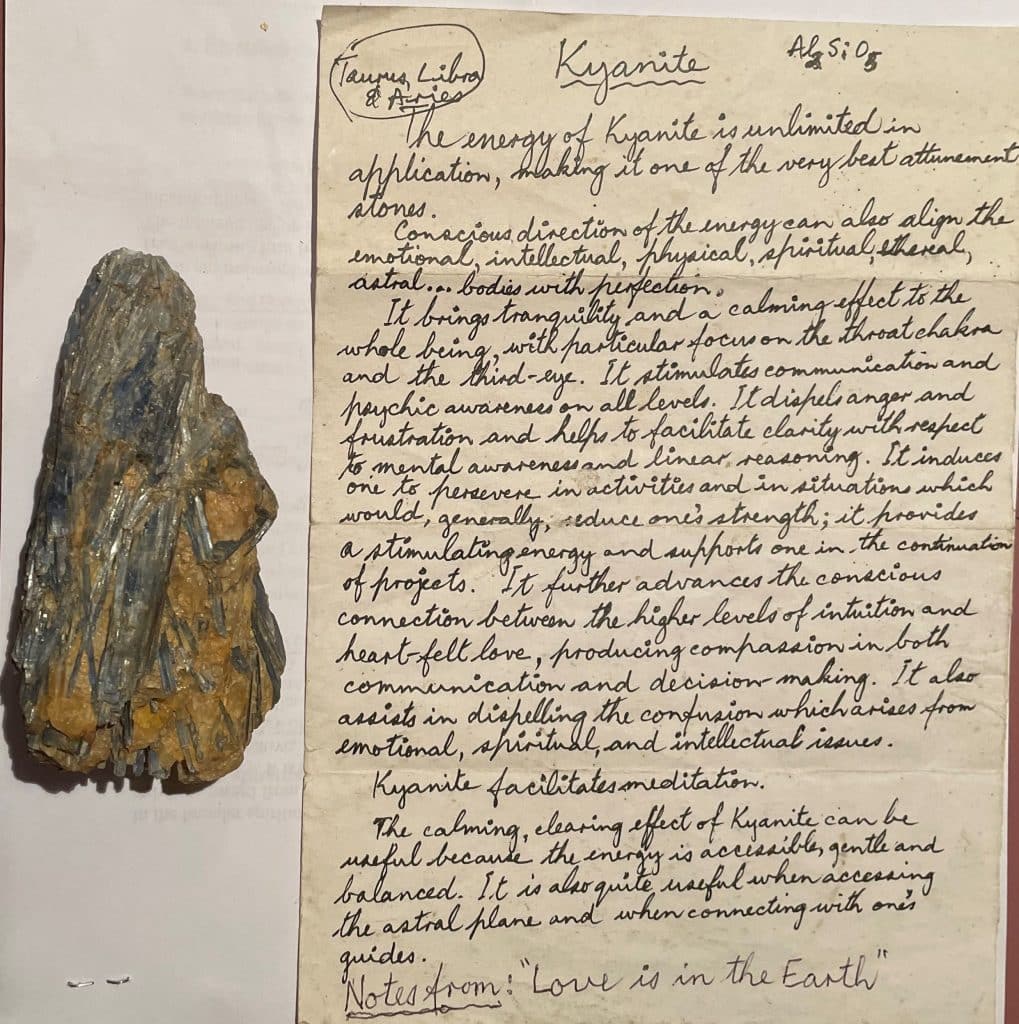 Taurus, Libra
& Aries
Kyanite
Al2SiO5
The energy of Kyanite is unlimited in
application, making it one of the very best attunement
stones.
Conscious direction of the energy can also align the
emotional, intellectual, physical, spiritual, ethereal,
astral... bodies with perfection.
It brings tranquility and a calming effect to the
whole being, with particular focus on the throat chakra
and the third-eye. It stimulates communication and
psychic awareness on all levels. It dispels anger and
frustration and helps to facilitate clarity with respect
to mental awareness and linear reasoning. It induces
one to persevere in activities and in situations which
would, generally, reduce one's strength; it provides
a stimulating energy and supports one in the continuation
of projects. It further advances the conscious
connection between the higher levels of intuition and
heart-felt love, producing compassion in both
communication and decision-making. It also
assists in dispelling the confusion which arises from
emotional, spiritual, and intellectual issues.
Kyanite facilitates meditation.
The calming, clearing effect of Kyanite can be
useful because the energy is accessible, gentle and
balanced. It is also quite useful when accessing
the astral plane and when connecting with one's
guides.
Notes from: "Love is in the Earth"